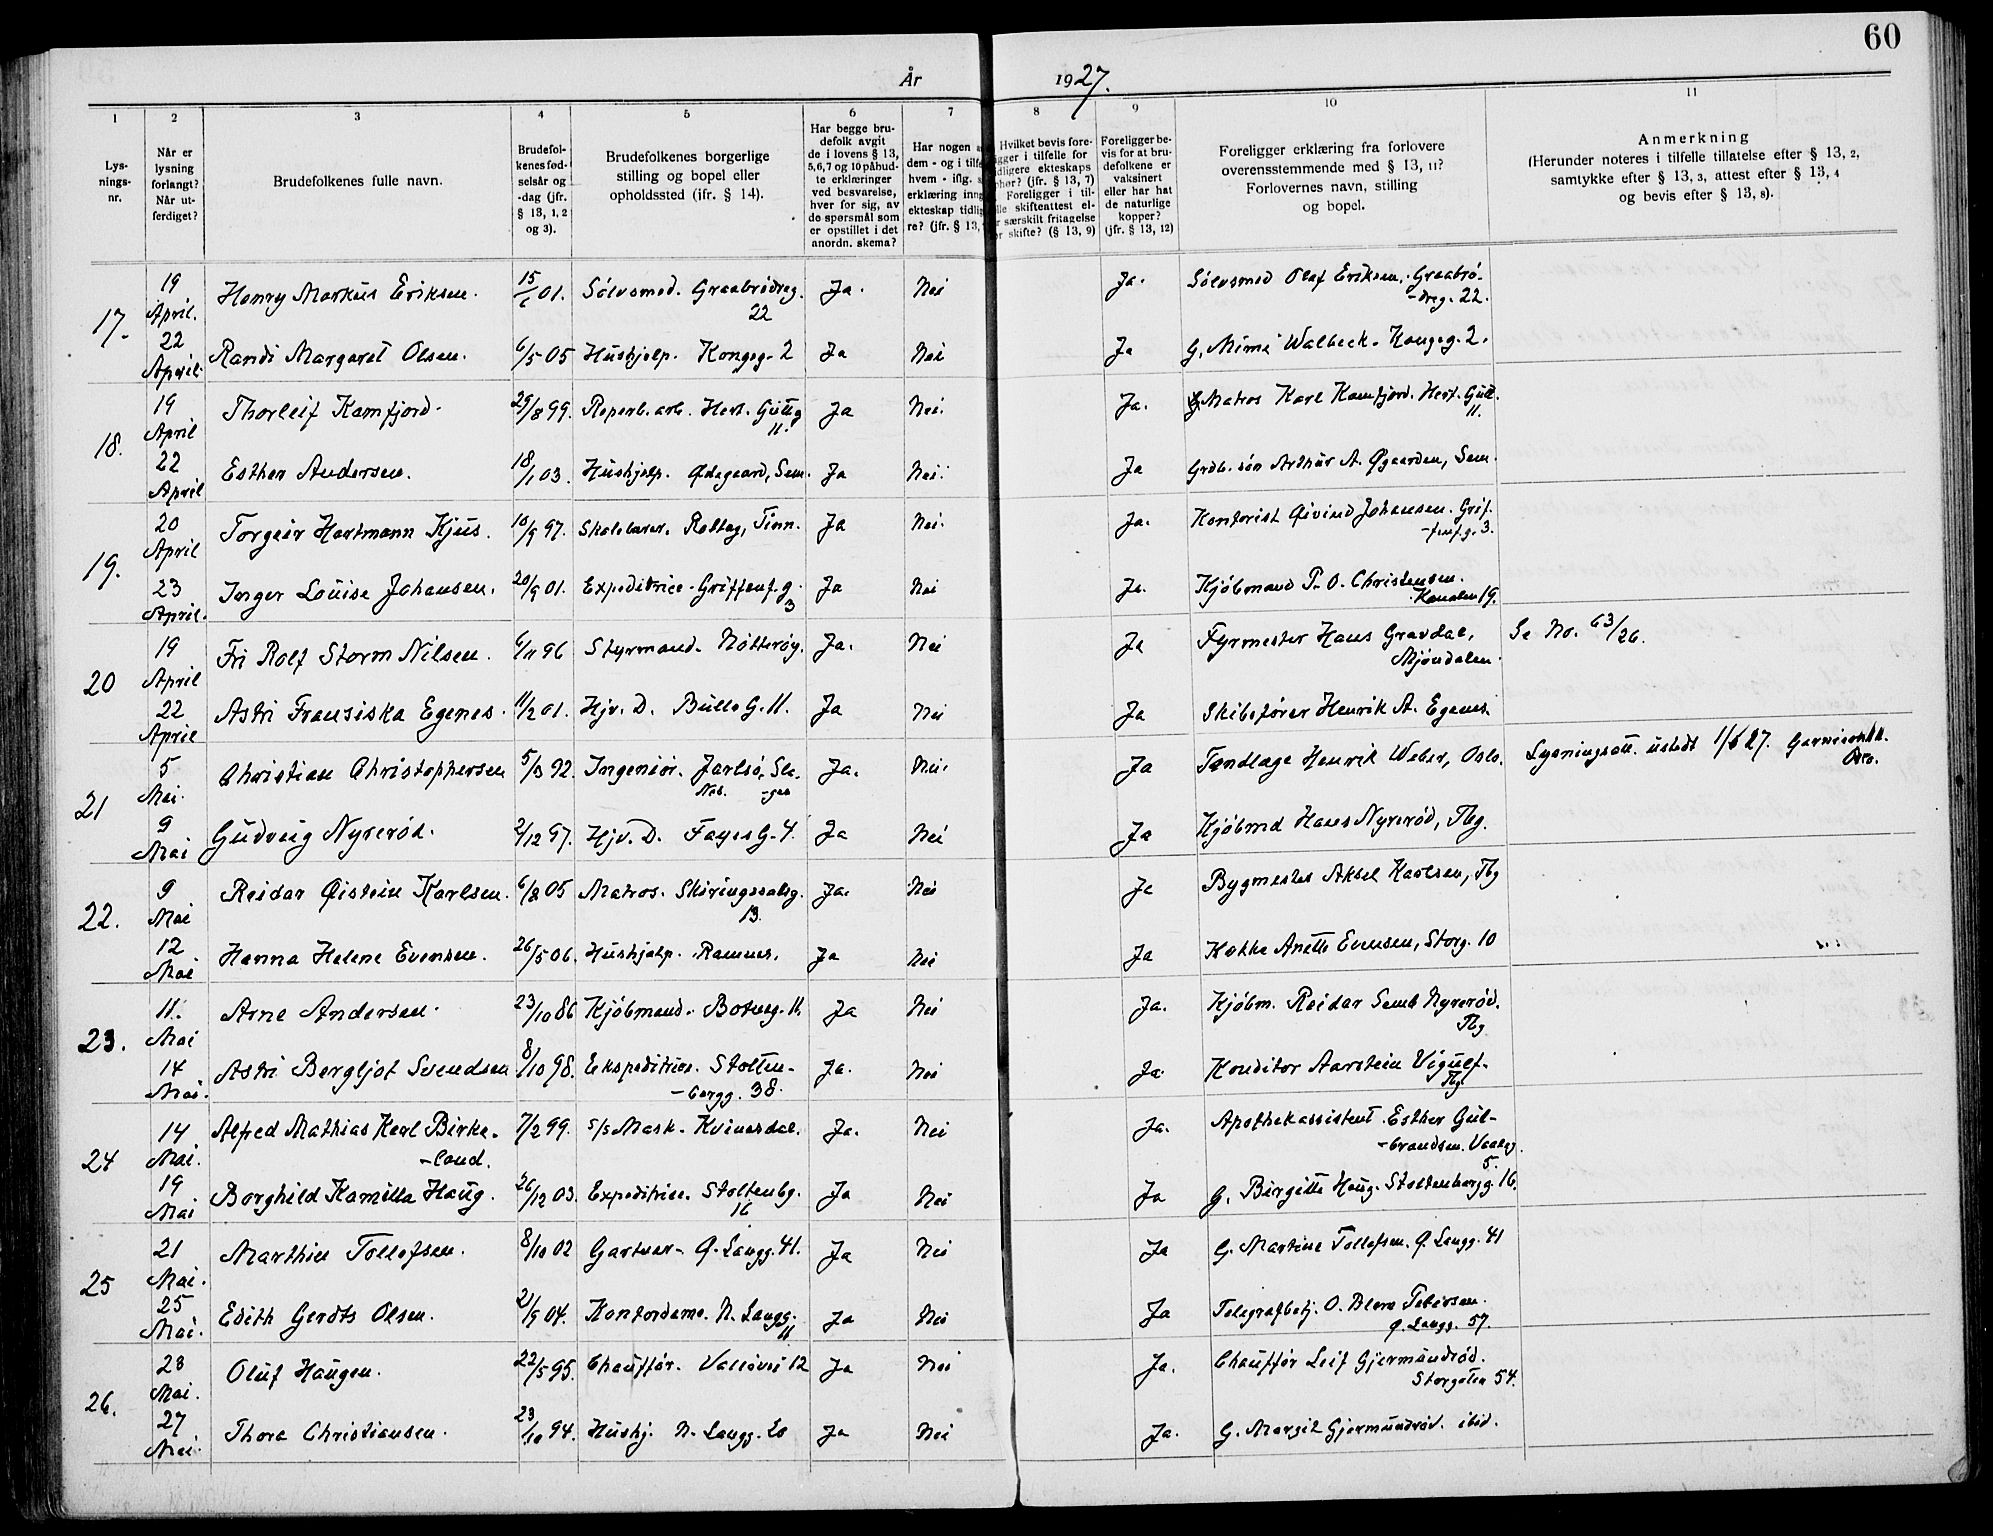 60
År 1927.
1 2 3 4 5 6 7 8 9 10 11
Lys-
nings-
nr.
Når er
lysning
forlangt?
Når ut-
ferdiget?
Brudefolkenes fulle navn.
Brudefol-
kenes fød-
selsår og
-dag (jfr.
§ 13, 1, 2
og 3).
Brudefolkenes borgerlige
stilling og bopel eller
opholdssted (jfr. § 14).
Har begge bru-
defolk avgit
de i lovens § 13,
5,6,7 og 10 påbud-
te erklæringer
ved besvarelse,
hver for sig, av
de spørsmål som
er opstillet i det
anordn. skema?
Har nogen
dem - og i tilf
hvem - iflg.
erklæring inng
ekteskap tidlig
re? (jfr. § 13,
Hvilket bevis fore-
igger i tilfelle for
idligere ekteskaps
phør? (jfr. § 13, 7)
Foreligger i til-
lle skifteattest el-
r særskilt fritagelse
or skifte? (§ 13, 9)
Foreligger be-
vis for at bru-
defolkene er
vaksinert
eller har hat
de naturlige
kopper?
(jfr. § 13, 12)
Foreligger erklæring fra forlovere
overensstemmende med § 13, 11?
Forlovernes navn, stilling
og bopel.
Anmerkning
(Herunder noteres i tilfelle tillatelse efter § 13, 2,
samtykke efter § 13, 3, attest efter § 13, 4
og bevis efter § 13, 8).
17. 19 April. Henry Markus Eriksen. 15/6 01. Sølvsmed. Graabrødreg. 22 Ja. Nei Ja. Sølvsmed Olaf Eriksen. Graabrø-
-dreg. 22.
22 April. Randi Margaret Olsen. 6/5 05 Hushjelp. Kongeg. 2 Ja Nei Ja G. Mimi Walbeck. Kongeg. 2.
18. 19 April Thorleif Kamfjord. 29/8 99. Reperb. arb. Hert. Guttg 11. Ja Nei. Ja. Matros Karl Kamfjord. Hert. Gutt.
11.
22 April Esther Andersen. 18/1 03. Hushjelp. Ødegaard, Sem. Ja Nei. Ja Grdb. søn Arthur A. Øgaarden, Sem.
19. 20 April Torgeir Hartmann Kjus. 10/9 97. Skolelærer. Rollag, Tinn. Ja Nei. Ja. Kontorist Øivind Johansen. Grif-
-fenf.g. 3.
23 April. Inger Louise Johansen. 20/9 01. Expeditrice. Griffenf. g. 3 Ja Nei Ja. Kjøbmand P. O. Christensen.
Kanalen 19.
20 19 April Fri Rolf Storm Nilsen. 6/11 96 Styrmand. Nøtterøy. Ja. Nei Ja Fyrmester Hans Gravdal,
Mjøndalen. Se No. 63/26.
22 April Astri Fransiska Egenes. 11/2 01. Hjv. D. Bulls G. 11. Ja Nei Ja Skibsfører Henrik A. Egenes.
21 5 Mai. Christian Christophersen 5/3 92. Ingeniør. Jarlsø, Sla-
Nøt. -gen Ja. Nei. Ja Tandlæge Henrik Weber, Oslo. Lysningsatt. utstedt 1/6 27. Garnisonsk.
Oslo.
9 Mai Gudveig Nyrerød. 2/12 97. Hjv. D. Fayes G. 4. Ja Nei Ja Kjøbmd Hans Nyrerød, Tbg.
22. 9 Mai Reidar Øistein Karlsen. 6/8 05 Matros. Skiringssalsg. 13. Ja. Nei Ja Bygmester Aksel Karlsen, Tbg
12 Mai Hanna Helene Evensen. 26/5 06. Hushjelp. Ramnes. Ja Nei Ja Kokke Anette Evensen, Storg. 10
23. 11. Mai Arne Andersen. 23/10 86 Kjøbmand. Boteng. 11. Ja Nei Ja. Kjøbm. Reidar Semb Nyrerød.
Tbg
14 Mai. Astri Bergljot Svendsen 8/10 98. Ekspeditrice. Stolten-
-bergg. 38. Ja. Nei Ja. Konditor Aarstein Vigulf.
Tbg.
24 14 Mai. Alfred Mathias Karl Birke-
-land. 7/2 99. S/S Mask. Kvinesdal. Ja. Nei Ja. Apothekassistent Esther Gul-
-brandsen. 5.
19 Mai Borghild Kamilla Haug. 26/12 03. Expeditrice. Stoltenbg. 16 Ja Nei Ja G. Birgitte Haug. Stoltenbergg. 16.
25 21 Mai. Marthin Tollefsen. 8/10 02 Gartner. Ø. Langg. 41. Ja Nei Ja G. Martine Tollefsen. Ø. Langg. 41
25 Mai. Edith Gerdts Olsen. 21/9 04. Kontordame. N. Langg. 11 Ja Nei Ja Telegrafbetj. O. Petersen.
Ø. Langg. 57.
26. 23 Mai. Oluf Haugen. 22/5 95. Chauffør. Valløvei 12 Ja Nei Ja. Chauffør Leif Gjermundrød.
Storgaten 54.
27 Mai. Thora Christiansen. 23/10 94. Hushj. N. Langg. 20 Ja Nei Ja. G. Margit Gjermundrød. ibid.